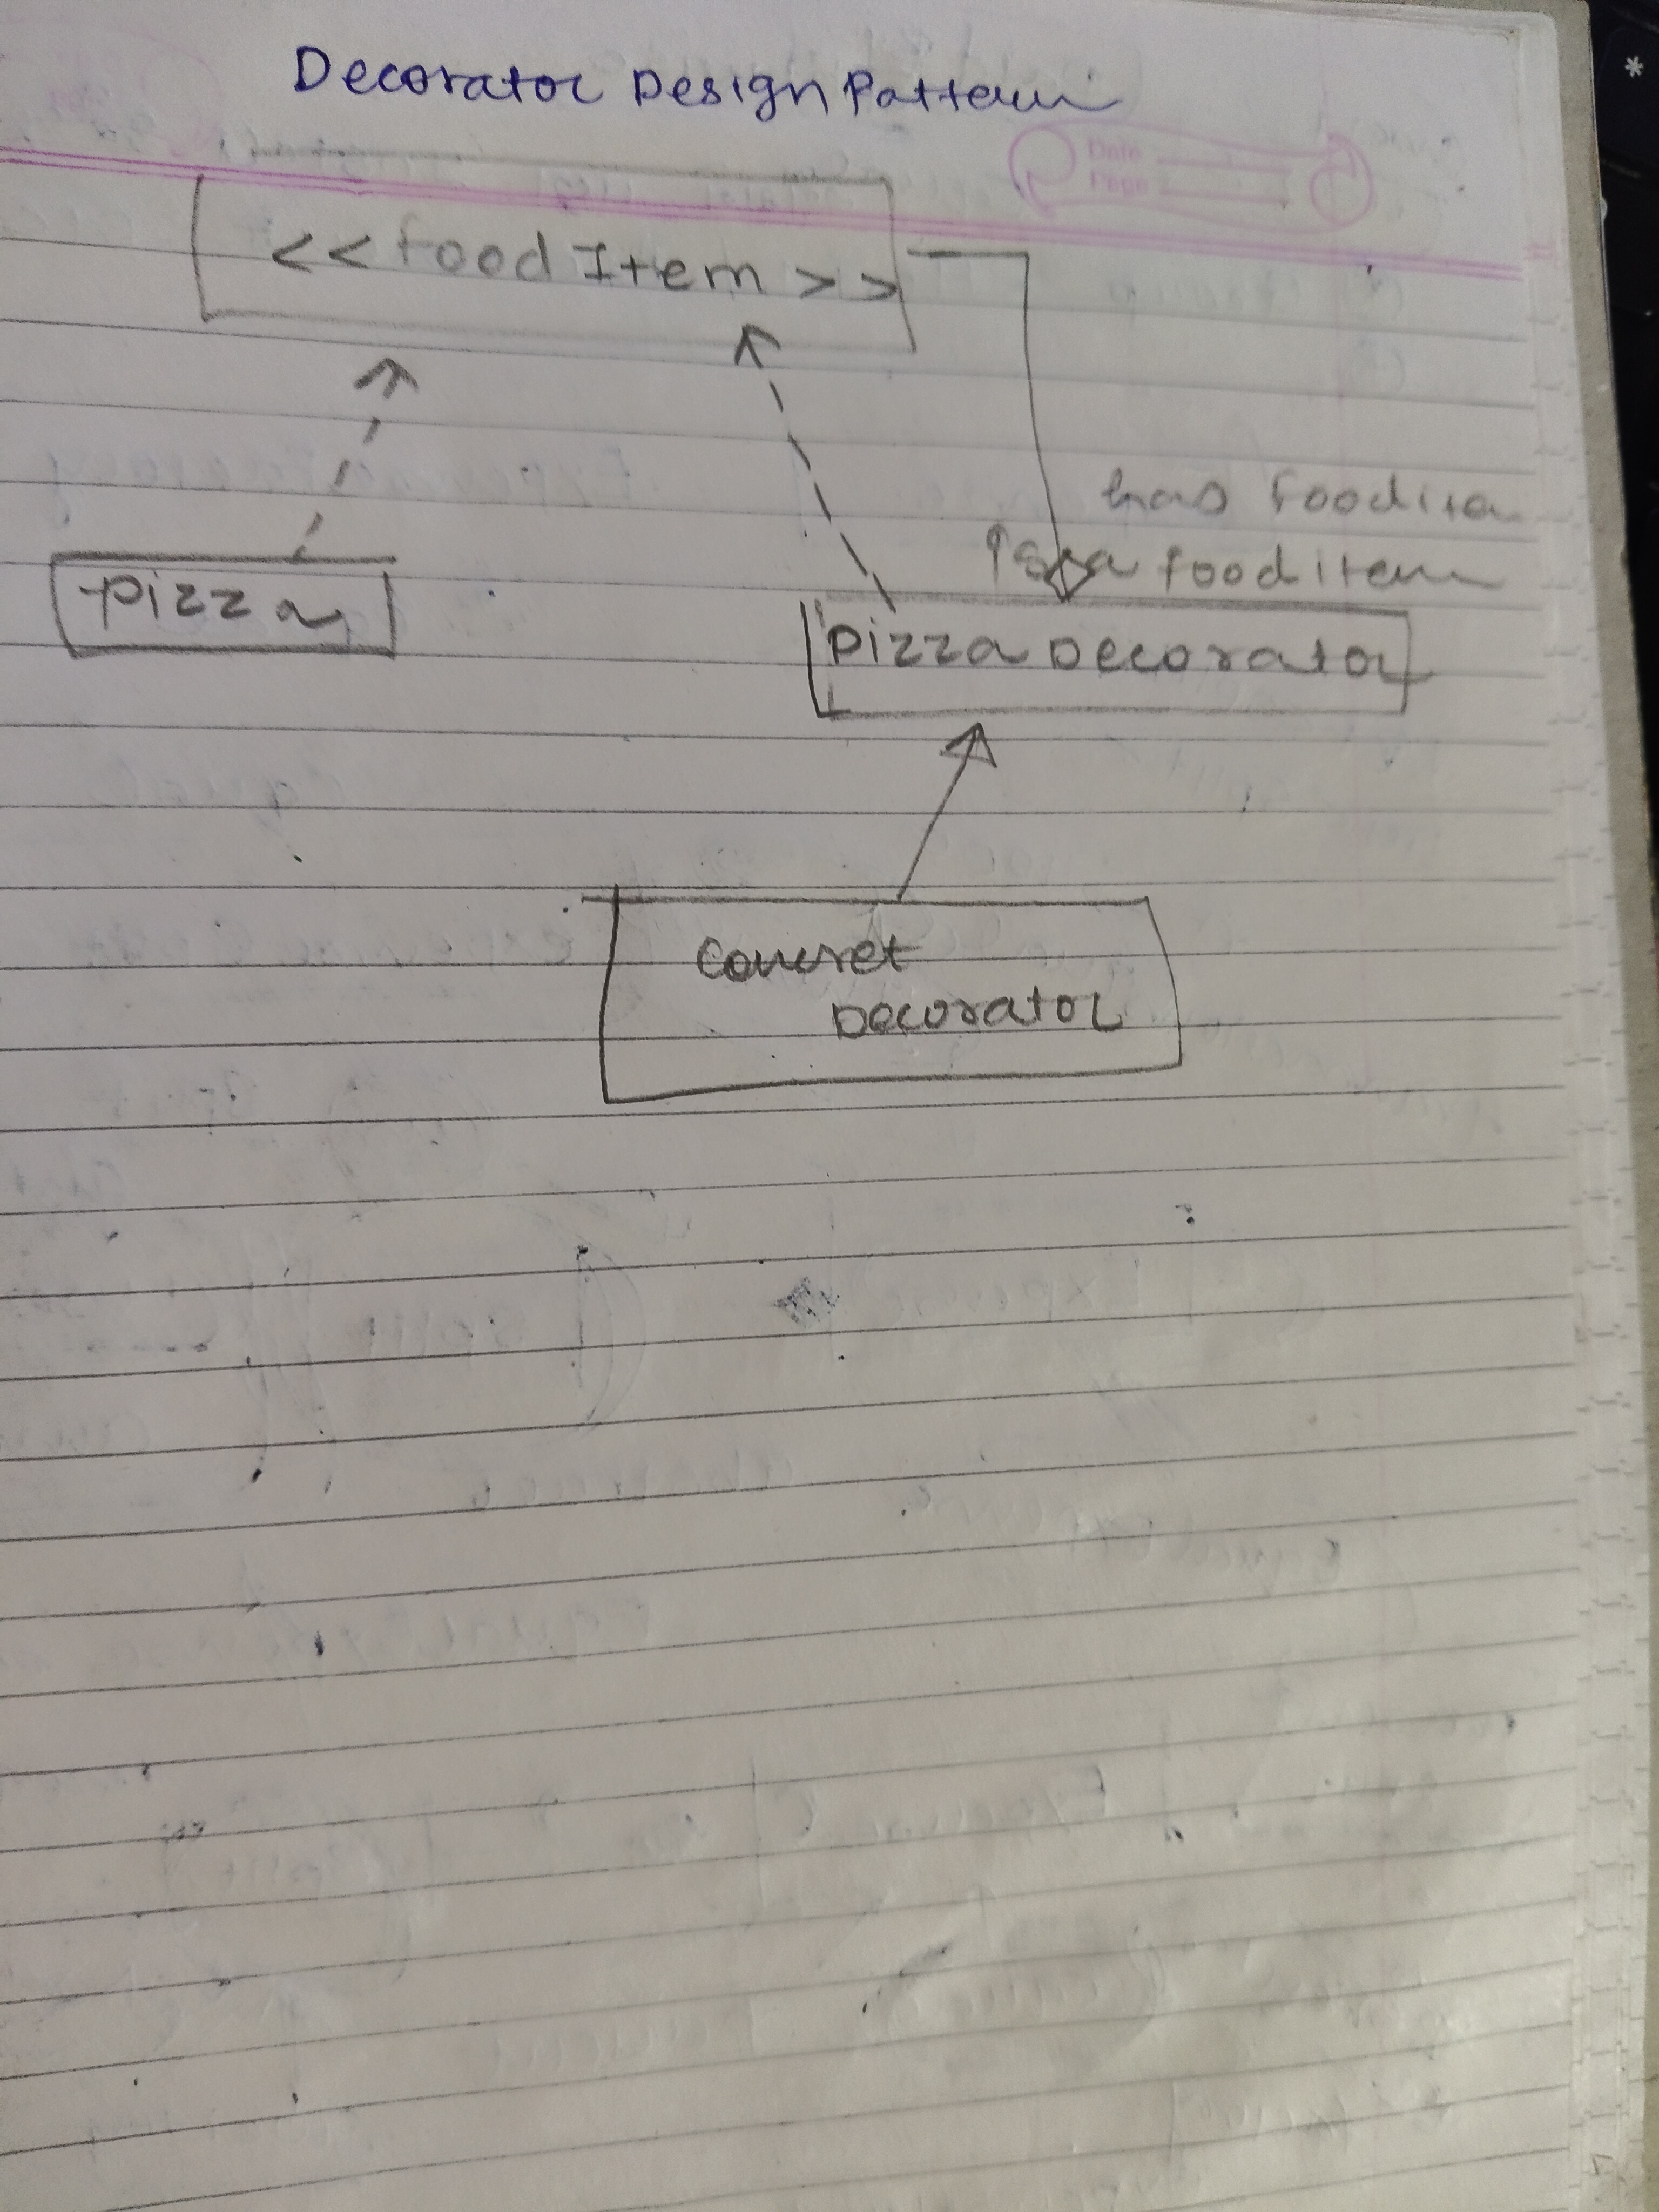 Decorator Design Pattern
Date
Page
<<food Item>>
has foodite
is a food item
Pizza
Pizza Decorator
Concret
Decorator